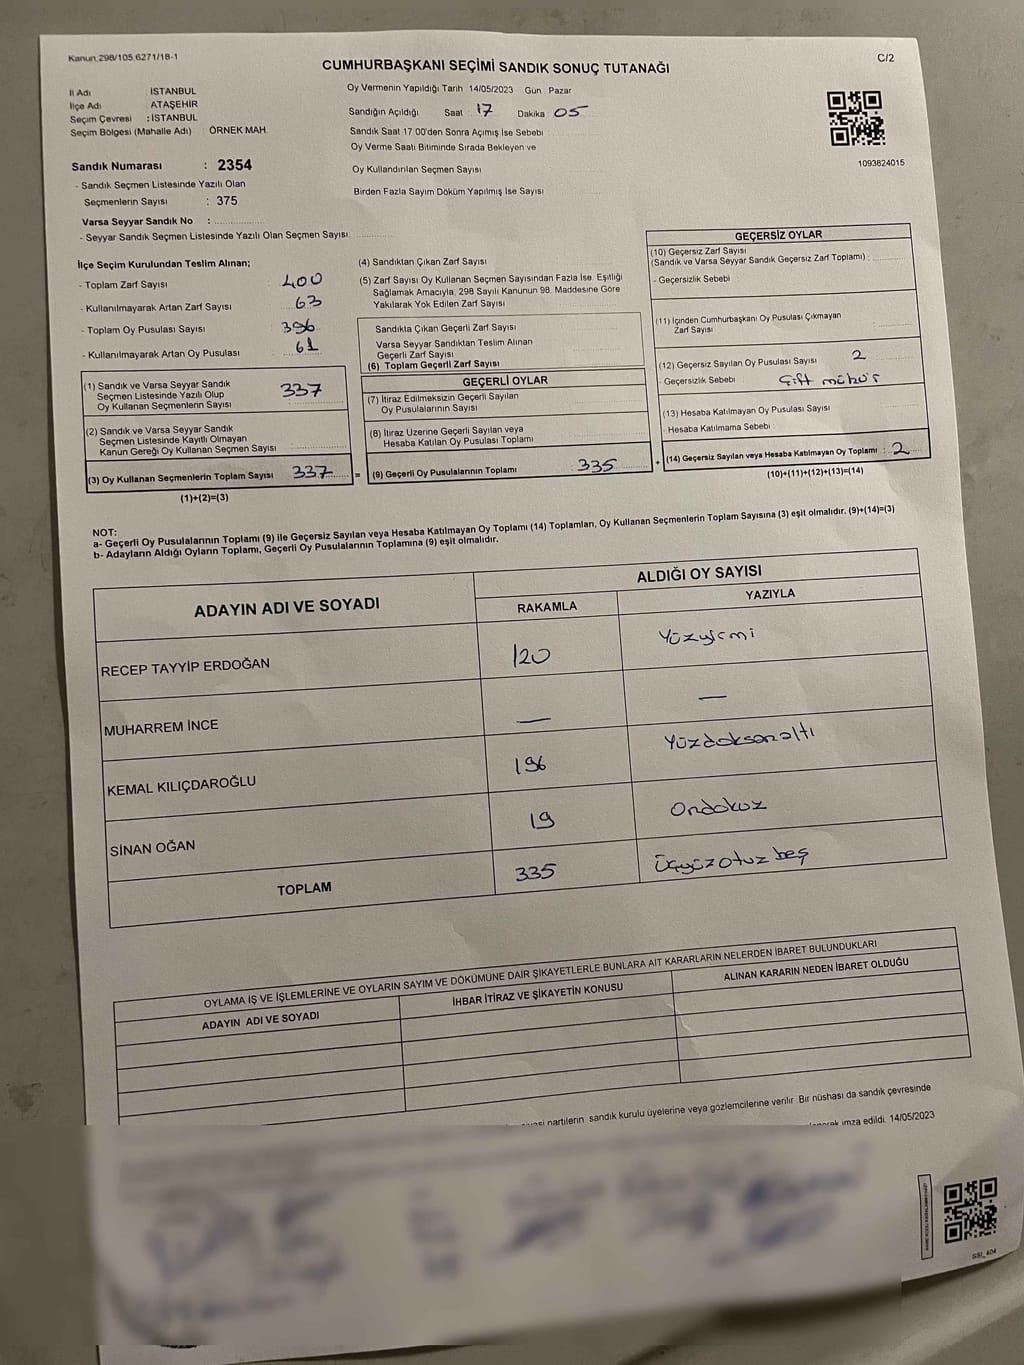 Kanun 298/105,6271/18-1
C/2
CUMHURBAŞKANI SEÇİMİ SANDIK SONUÇ TUTANAĞI
İl Adı : İSTANBUL
İlçe Adı : ATAŞEHİR
Seçim Çevresi : İSTANBUL
Seçim Bölgesi (Mahalle Adı) : ÖRNEK MAH.
Oy Vermenin Yapıldığı Tarih 14/05/2023 Gün Pazar
Sandığın Açıldığı Saat 17 Dakika 05
Sandık Saat 17 00'den Sonra Açımış İse Sebebi
Oy Verme Saati Bitiminde Sırada Bekleyen ve
Oy Kullandırılan Seçmen Sayısı
Birden Fazla Sayım Döküm Yapılmış İse Sayısı
1093824015
Sandık Numarası : 2354
- Sandık Seçmen Listesinde Yazılı Olan
Seçmenlerin Sayısı : 375
Varsa Seyyar Sandık No :
- Seyyar Sandık Seçmen Listesinde Yazılı Olan Seçmen Sayısı:
İlçe Seçim Kurulundan Teslim Alınan;
- Toplam Zarf Sayısı 400
- Kullanılmayarak Artan Zarf Sayısı 63
- Toplam Oy Pusulası Sayısı 396
- Kullanılmayarak Artan Oy Pusulası 61
(1) Sandık ve Varsa Seyyar Sandık
Seçmen Listesinde Yazılı Olup
Oy Kullanan Seçmenlerin Sayısı 337
(2) Sandık ve Varsa Seyyar Sandık
Seçmen Listesinde Kayıtlı Olmayan
Kanun Gereği Oy Kullanan Seçmen Sayısı
(3) Oy Kullanan Seçmenlerin Toplam Sayısı 337 =
(1)+(2)=(3)
(4) Sandıktan Çıkan Zarf Sayısı
(5) Zarf Sayısı Oy Kullanan Seçmen Sayısından Fazla İse, Eşitliği
Sağlamak Amacıyla, 298 Sayılı Kanunun 98. Maddesine Göre
Yakılarak Yok Edilen Zarf Sayısı
Sandıkta Çıkan Geçerli Zarf Sayısı
Varsa Seyyar Sandıktan Teslim Alınan
Geçerli Zarf Sayısı
(6) Toplam Geçerli Zarf Sayısı
GEÇERLİ OYLAR
(7) İtiraz Edilmeksizin Geçerli Sayılan
Oy Pusulalarının Sayısı
(8) İtiraz Üzerine Geçerli Sayılan veya
Hesaba Katılan Oy Pusulası Toplamı
(9) Geçerli Oy Pusulalarının Toplamı 335 +
GEÇERSİZ OYLAR
(10) Geçersiz Zarf Sayısı
(Sandık ve Varsa Seyyar Sandık Geçersiz Zarf Toplamı) :
- Geçersizlik Sebebi
(11) İçinden Cumhurbaşkanı Oy Pusulası Çıkmayan
Zarf Sayısı :
(12) Geçersiz Sayılan Oy Pusulası Sayısı 2
- Geçersizlik Sebebi Çift mühür
(13) Hesaba Katılmayan Oy Pusulası Sayısı
- Hesaba Katılmama Sebebi
(14) Geçersiz Sayılan veya Hesaba Katılmayan Oy Toplamı : 2
(10)+(11)+(12)+(13)=(14)
NOT:
a- Geçerli Oy Pusulalarının Toplamı (9) ile Geçersiz Sayılan veya Hesaba Katılmayan Oy Toplamı (14) Toplamları, Oy Kullanan Seçmenlerin Toplam Sayısına (3) eşit olmalıdır. (9)+(14)=(3)
b- Adayların Aldığı Oyların Toplamı, Geçerli Oy Pusulalarının Toplamına (9) eşit olmalıdır.
ADAYIN ADI VE SOYADI
ALDIĞI OY SAYISI
RAKAMLA YAZIYLA
RECEP TAYYİP ERDOĞAN 120 Yüzyirmi
MUHARREM İNCE — —
KEMAL KILIÇDAROĞLU 196 Yüzdoksanaltı
SİNAN OĞAN 19 Ondokuz
TOPLAM 335 Üçyüzotuz beş
OYLAMA İŞ VE İŞLEMLERİNE VE OYLARIN SAYIM VE DÖKÜMÜNE DAİR ŞİKAYETLERLE BUNLARA AİT KARARLARIN NELERDEN İBARET BULUNDUKLARI
ADAYIN ADI VE SOYADI İHBAR İTİRAZ VE ŞİKAYETİN KONUSU ALINAN KARARIN NEDEN İBARET OLDUĞU
partilerin sandık kurulu üyelerine veya gözlemcilerine verilir Bir nüshası da sandık çevresinde
imza edildi. 14/05/2023
SSI_404